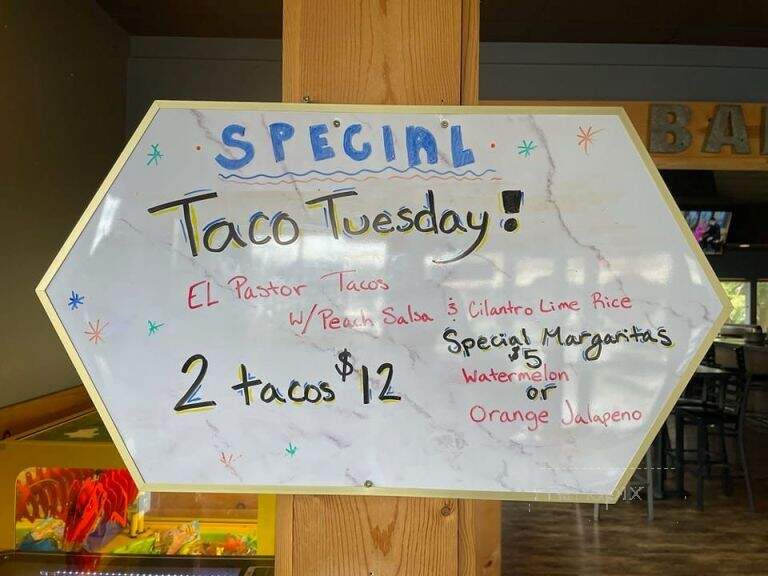 SPECIAL
Taco Tuesday!
EL Pastor Tacos
W/Peach Salsa & Cilantro Lime Rice
2 tacos $12
Special Margaritas
$5
Watermelon
or
Orange Jalapeno
BA